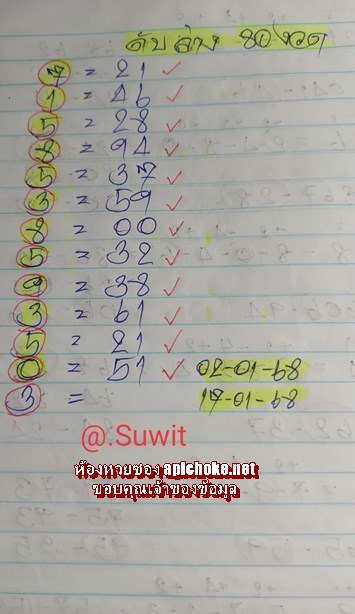 ดับล่าง 80งวด
7 = 21 ✓
1 = 46 ✓
5 = 28 ✓
8 = 94 ✓
5 = 37 ✓
3 = 59 ✓
8 = 00 ✓
5 = 32 ✓
9 = 38 ✓
3 = 61 ✓
5 = 21 ✓
0 = 51 ✓ 02-01-68
3 = 17-01-68
@.Suwit
ห้องหวยซอง apichoke.net
ขอบคุณเจ้าของข้อมูล